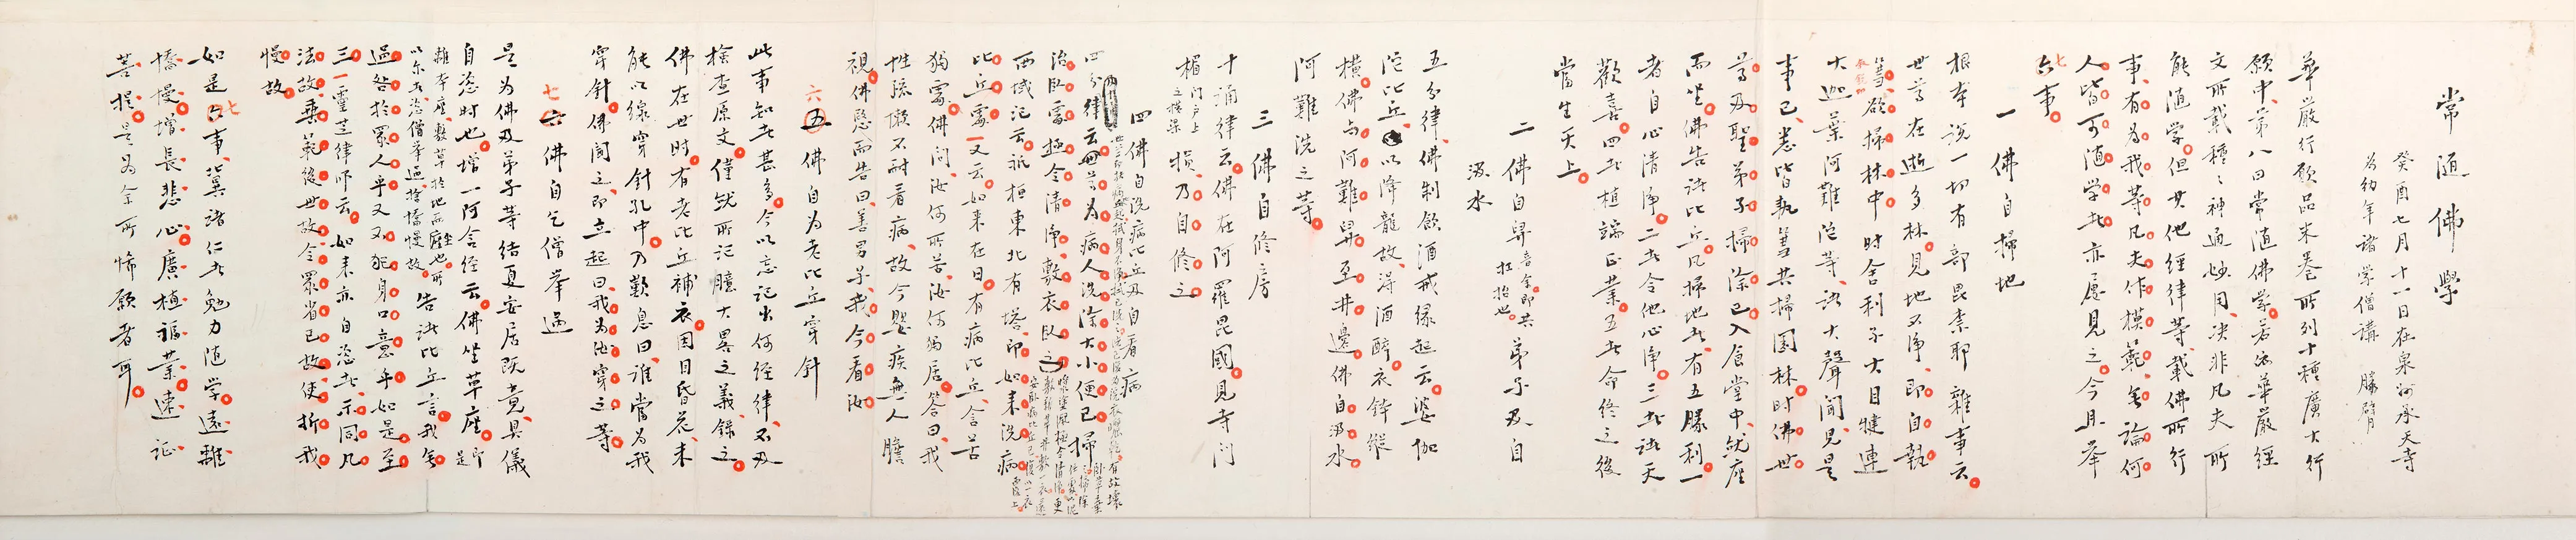 常随佛學
癸酉七月十一日在泉州承天寺
為幼年諸學僧講 勝臂
華嚴行願品末卷所列十種廣大行
願中、第八曰常随佛學、若依華嚴經
文所載種種神通妙用、决非凡夫所
能随學。但其他經律等、載佛所行
事、有為我等凡夫作模範、無論何
人、皆可随學者、亦屢見之。今且舉
七
六事。
一 佛自掃地
根本說一切有部毘柰耶雜事云。
世尊在逝多林、見地不淨、即自執
篲、欲掃林中。時舍利子大目犍連
大迦葉阿難陀等、諸大聲聞、見是
事已、悉皆執篲共掃園林。時佛世
尊及聖弟子掃除已、入食堂中、就座
而坐。佛告諸比丘、凡掃地者有五勝利、一
者自心清淨。二者令他心淨。三者諸天
歡喜。四者植端正業。五者命終之後
當生天上。
二 佛自舁 音余即共扛抬也 弟子及自
汲水
五分律、佛制飲酒戒緣起云。婆伽
陀比丘、以降龍故、得酒醉。衣鉢縱
橫。佛与阿難舁至井邊。佛自汲水、
阿難洗之等。
三 佛自修房
十誦律云。佛在阿羅毘國。見寺門
楣 門戶上之橫梁 損、乃自修之。
四 佛自洗病比丘及自看病
四分律云、世尊為病人洗除大小便已、掃
治臥處、極令清淨、敷衣臥之。
西域記云、祇桓東北有塔、即如来洗病
比丘處。又云、如来在日、有病比丘、含苦
獨處。佛問、汝何所苦、汝何獨居。答曰、我
性疏懶、不耐看病、故今嬰疾、無人瞻
視。佛愍而告曰、善男子、我今看汝。
六
五 佛自為老比丘穿針
此事知者甚多、今以忘記出何經律、不及
檢查原文、僅就所記臆大畧之義錄之。
佛在世時、有老比丘補衣、因目昏花、未
能以線穿針孔中。乃歎息曰、誰當為我
穿針。佛聞之、即立起曰、我為汝穿之等。
七
六 佛自乞僧舉過
是為佛及弟子等結夏安居既竟、具儀
自恣時也。增一阿含經云、佛坐草座 即是
離本座、敷草於地而坐也。所
以尔者、恣僧舉過、捨憍慢故。 告諸比丘言、我無
過咎於眾人乎、又不犯身口意乎。如是至
三。靈芝律師云、如来亦自恣者、示同凡
法故、垂範後世故、令眾省己故、使折我
慢故。
七
如是六事、冀諸仁者勉力随學。遠離
憍慢、增長悲心、廣植福業、速証
菩提、是為余所悕願者耳。